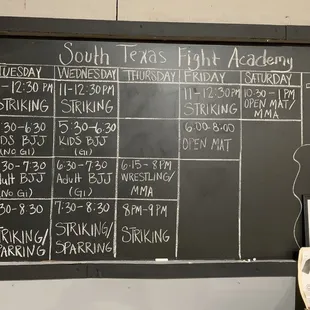 South Texas Fight Academy
TUESDAY WEDNESDAY THURSDAY FRIDAY SATURDAY
-12:30 PM 11-12:30 PM 11-12:30 PM 10:30-1PM
STRIKING STRIKING STRIKING OPEN MAT/
MMA
:30-6:30 5:30-6:30 6:00-8:00
KIDS BJJ KIDS BJJ OPEN MAT
(NO GI) (GI)
:30-7:30 6:30-7:30 6:15-8PM
Adult BJJ Adult BJJ WRESTLING/
(NO GI) (GI) MMA
:30-8:30 7:30-8:30 8PM-9PM
STRIKING/ STRIKING/ STRIKING
SPARRING SPARRING